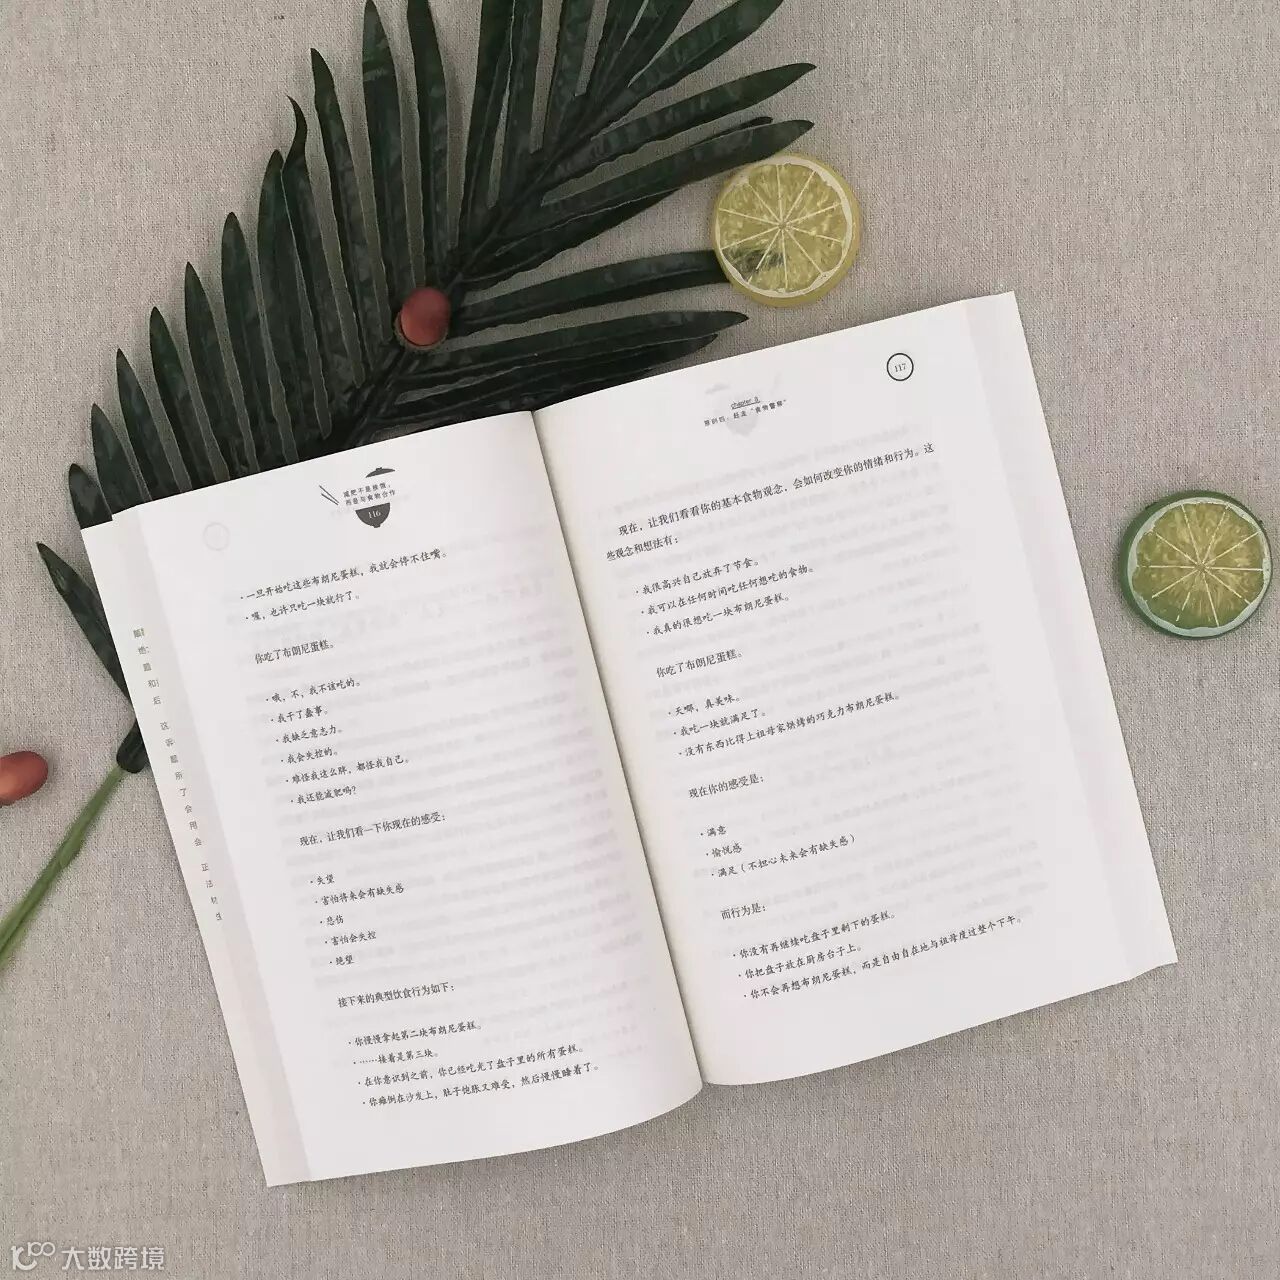 减肥不是挨饿，
而是与食物合作
116
·一旦开始吃这些布朗尼蛋糕，我就会停不住嘴。
·嘿，也许只吃一块就行了。
你吃了布朗尼蛋糕。
·哦，不，我不该吃的。
·我干了蠢事。
·我缺乏意志力。
·我会失控的。
·难怪我这么胖，都怪我自己。
·我还能减肥吗？
现在，让我们看一下你现在的感受：
·失望
·害怕将来会有缺失感
·悲伤
·害怕会失控
·绝望
接下来的典型饮食行为如下：
·你慢慢拿起第二块布朗尼蛋糕。
·……接着是第三块。
·在你意识到之前，你已经吃光了盘子里的所有蛋糕。
·你瘫倒在沙发上，肚子饱胀又难受，然后慢慢睡着了。
117
chapter 8
原则四：赶走“食物警察”
现在，让我们看看你的基本食物观念，会如何改变你的情绪和行为。这
些观念和想法有：
·我很高兴自己放弃了节食。
·我可以在任何时间吃任何想吃的食物。
·我真的很想吃一块布朗尼蛋糕。
你吃了布朗尼蛋糕。
·天哪，真美味。
·我吃一块就满足了。
·没有东西比得上祖母家烘烤的巧克力布朗尼蛋糕。
现在你的感受是：
·满意
·愉悦感
·满足（不担心未来会有缺失感）
而行为是：
·你没有再继续吃盘子里剩下的蛋糕。
·你把盘子放在厨房台子上。
·你不会再想布朗尼蛋糕，而是自由自在地与祖母度过整个下午。
大数跨境